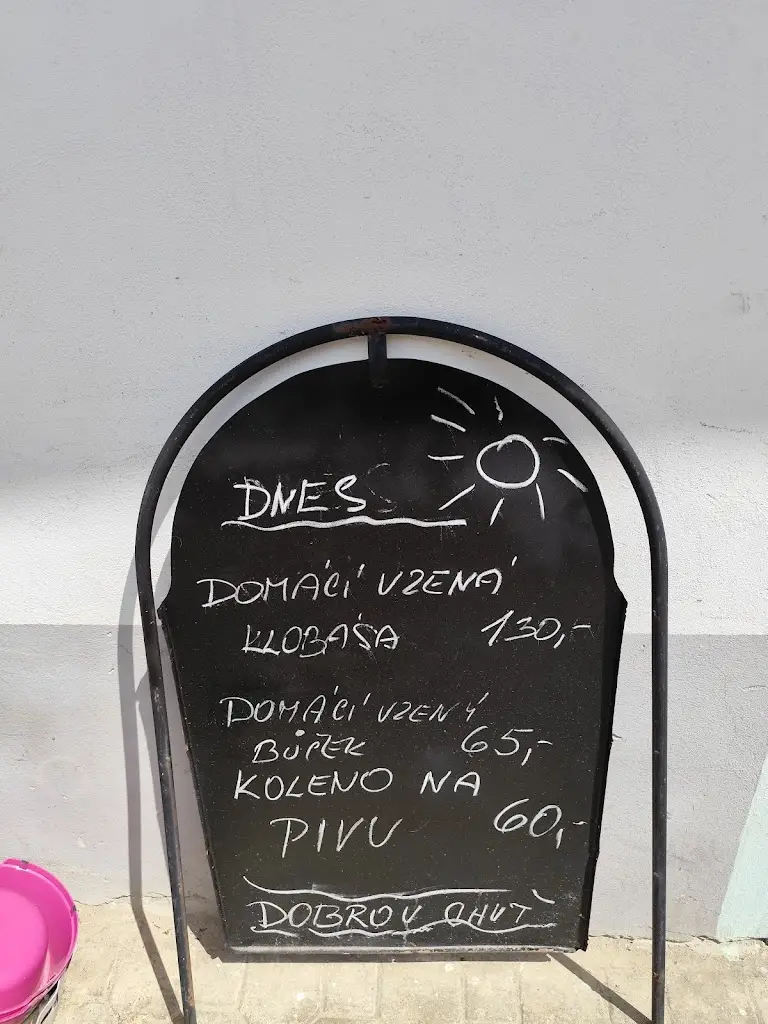 DNES
DOMÁCÍ UZENÁ
KLOBÁSA 130,-
DOMÁCÍ UZENÝ
BŮČEK 65,-
KOLENO NA
PIVU 60,-
DOBROU CHUŤ